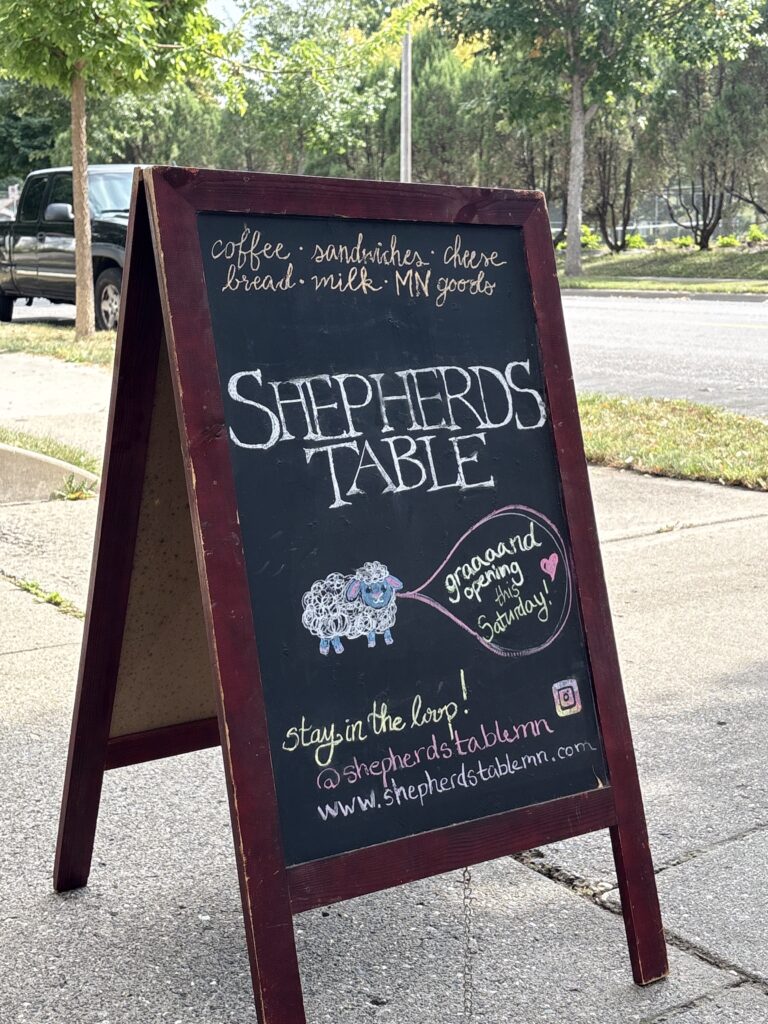 coffee · sandwiches · cheese
bread · milk · MN goods
SHEPHERDS
TABLE
graaaand
opening
this
Saturday!
stay in the loop!
@shepherdstablemn
www.shepherdstablemn.com